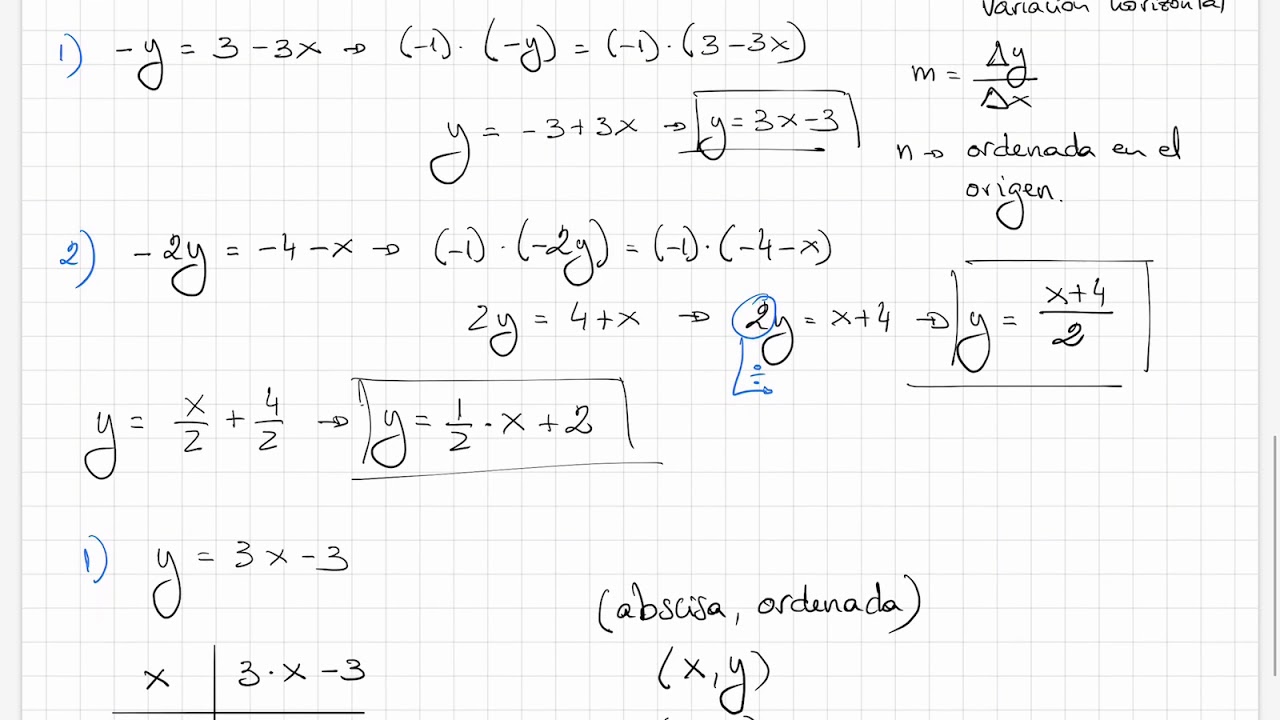 variación horizontal
1) -y = 3 - 3x → (-1) · (-y) = (-1) · (3 - 3x)
m = Δy/Δx
y = -3 + 3x → y = 3x - 3
n → ordenada en el
origen.
2) -2y = -4 - x → (-1) · (-2y) = (-1) · (-4 - x)
2y = 4 + x → 2y = x + 4 → y = (x+4)/2
÷
y = x/2 + 4/2 → y = 1/2 · x + 2
1) y = 3x - 3
(abscisa, ordenada)
x | 3 · x - 3
(x, y)